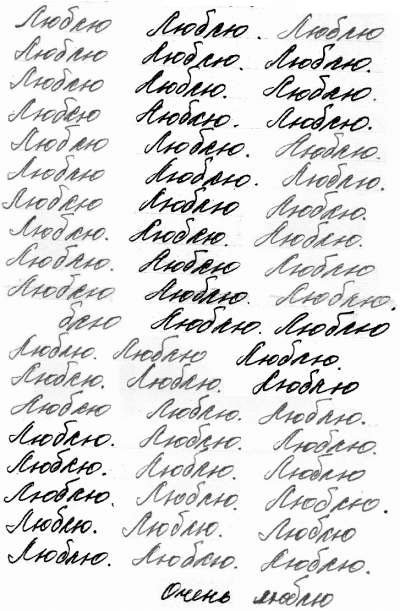 Люблю Люблю. Люблю
Люблю Люблю. Люблю.
Люблю Люблю. Люблю.
Люблю Люблю. Люблю.
Люблю Люблю. Люблю.
Люблю Люблю. Люблю.
Люблю Люблю Люблю.
Люблю. Люблю. Люблю.
Люблю. Люблю Люблю
Люблю Люблю. Люблю.
блю Люблю. Люблю
Люблю. Люблю Люблю.
Люблю. Люблю. Люблю
Люблю Люблю. Люблю.
Люблю. Люблю. Люблю.
Люблю. Люблю. Люблю
Люблю. Люблю. Люблю.
Люблю. Люблю. Люблю
Люблю. Люблю. Люблю.
Очень люблю